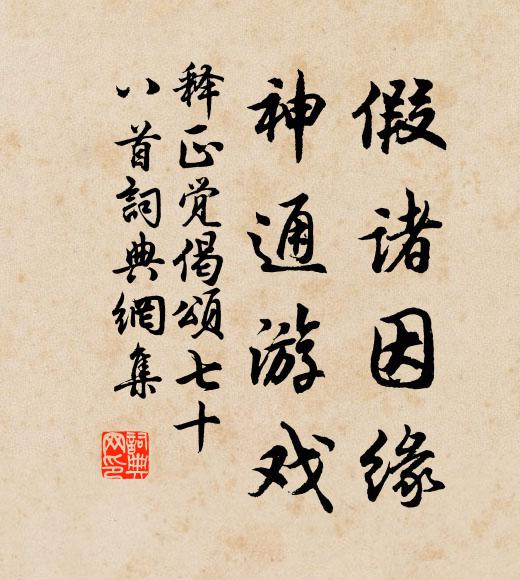 假诸因缘
神通游戏
释正觉偈颂七十
八首詞典網集
詞典
网印